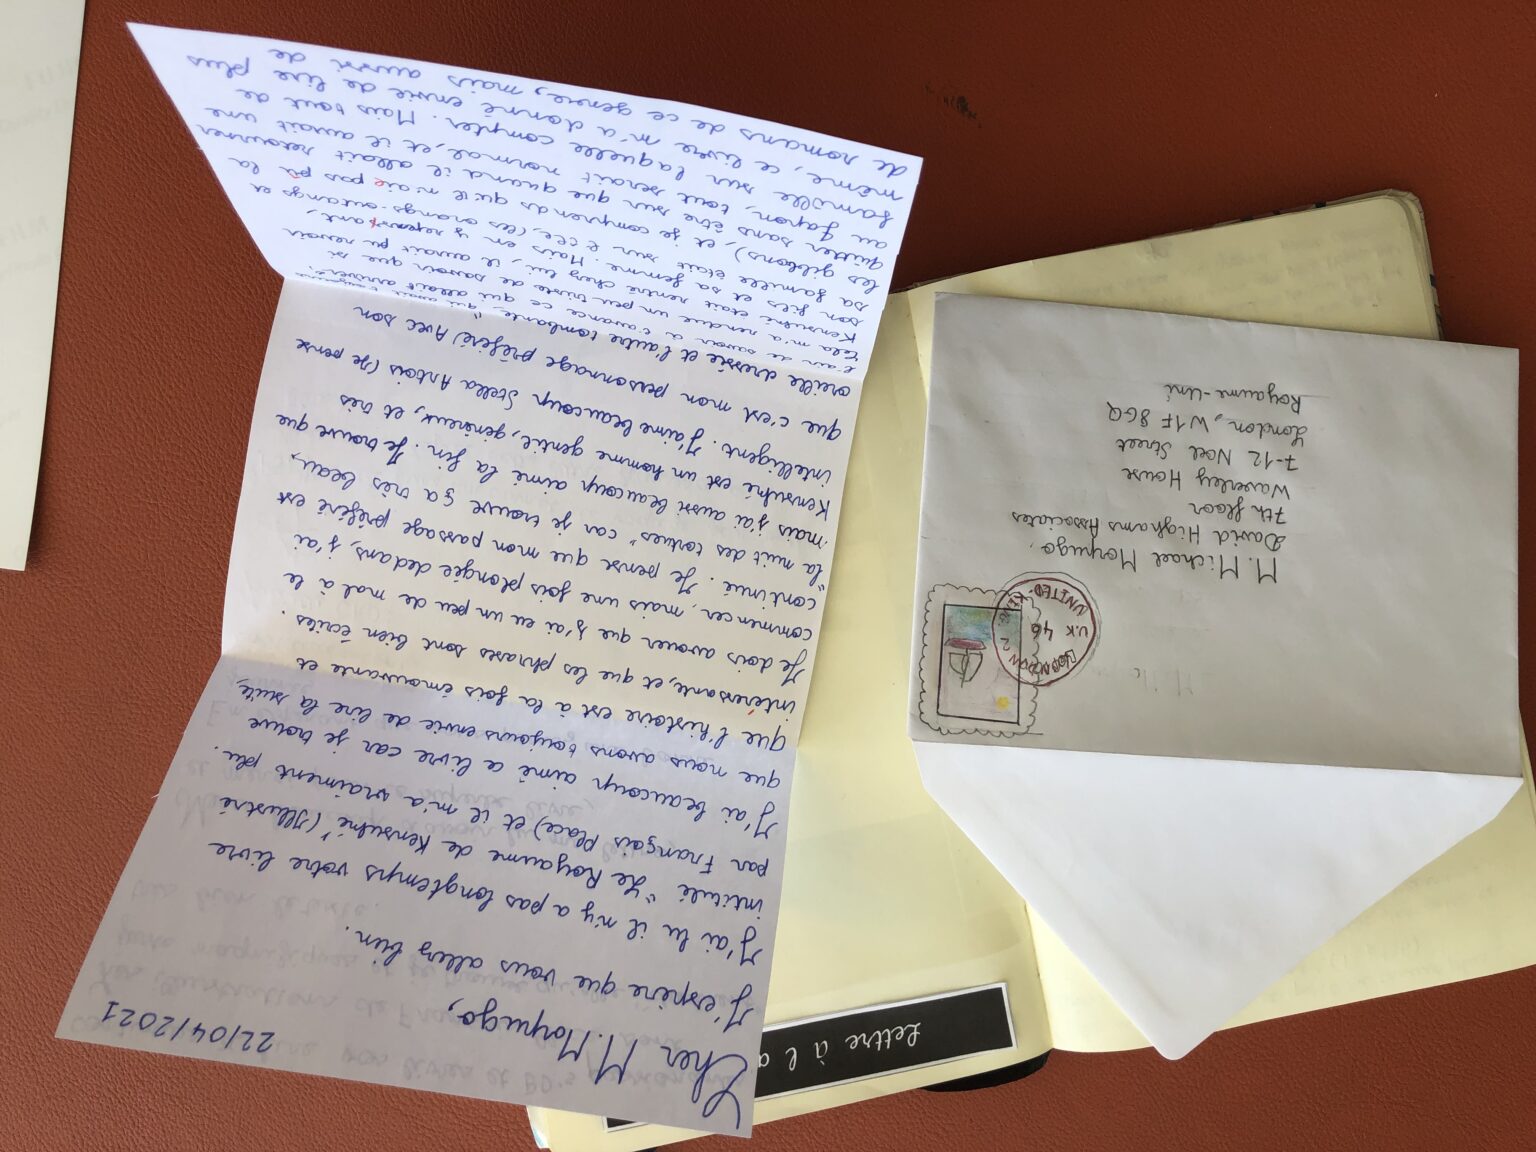 22/04/2021
Cher M. Morpugo,
J'espère que vous allez bien.
J'ai lu il n'y a pas longtemps votre livre
intitulé "Le Royaume de Kensuké" (Illustré
par Français Place) et il m'a vraiment plu.
J'ai beaucoup aimé ce livre car je trouve
que nous avons toujours envie de lire la suite,
que l'histoire est à la fois émouvante et
intéressante, et que les phrases sont bien écrites.
Je dois avouer que j'ai eu un peu de mal à le
commencer, mais une fois plongée dedans, j'ai
continué. Je pense que mon passage préféré est
"la nuit des tortues" car je trouve ça très beau,
mais j'ai aussi beaucoup aimé la fin. Je trouve que
Kensuké est un homme gentil, généreux, et très
intelligent. J'aime beaucoup Stella Artois (Je pense
que c'est mon personnage préféré) Avec son
oreille dressée et l'autre tombante, qui avait toujours
l'air de savoir à l'avance ce qui allait arriver.
Cela m'a rendue un peu triste de savoir que si
Kensuké était rentré chez lui, il aurait pu revoir
son fils et sa femme. Mais en y repensant,
sa famille était sur l'île, (les orangs-outangs et
les gibbons), et je comprends qu'il n'aie pas pu la
quitter sans être sur que quand il allait retourner
au Japon, tout serait normal, et il aurait une
famille sur laquelle compter. Mais tout de
même, ce livre m'a donné envie de lire plus
de romans de ce genre, mais aussi de
M. Michael Morpugo,
David Highams Associates
7th floor
Waverley House
7-12 Noel Street
London, W1F 8GQ
Royaume-Uni
LONDON 2
U.K 46
UNITED-KING
Lettre à l a